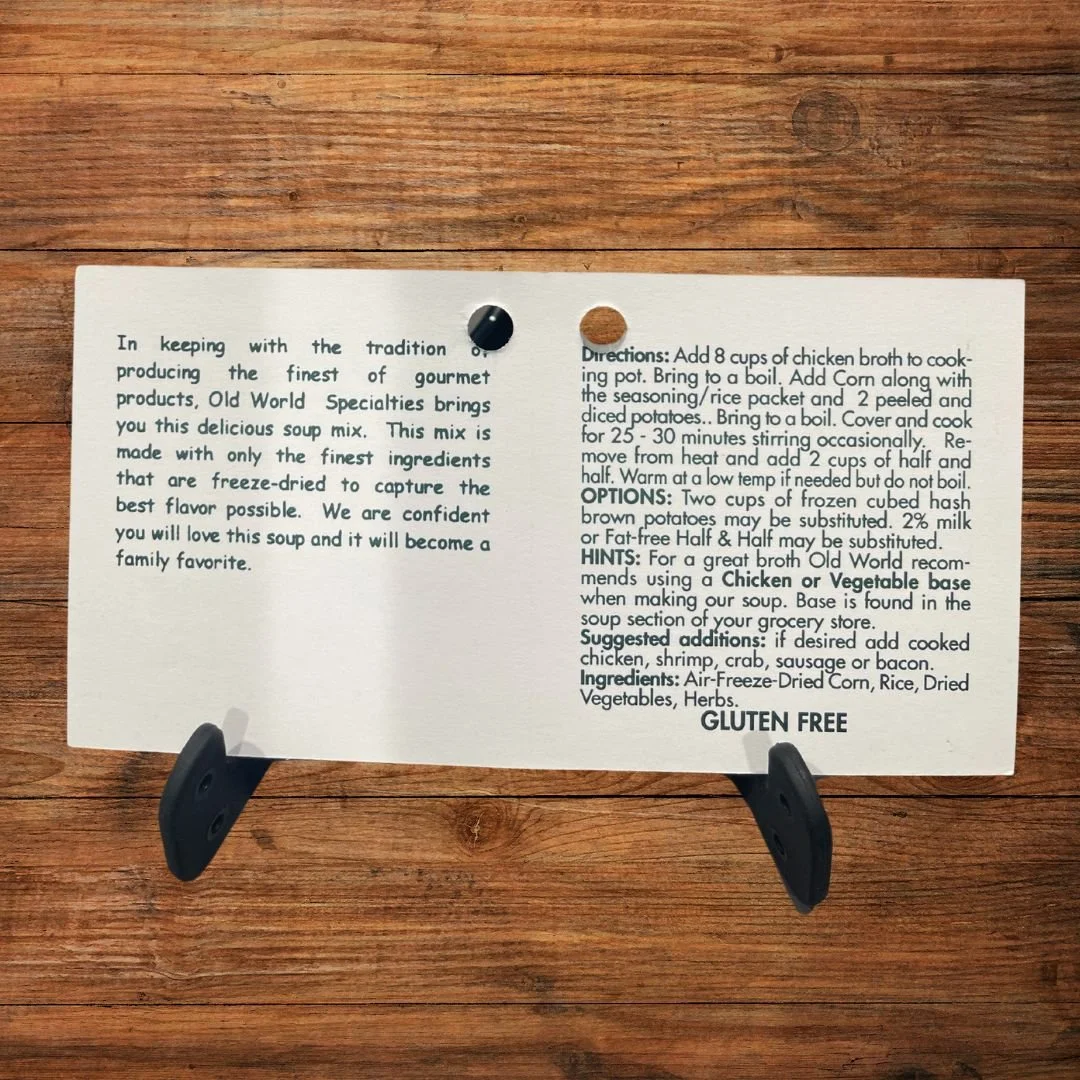 In keeping with the tradition of
producing the finest of gourmet
products, Old World Specialties brings
you this delicious soup mix. This mix is
made with only the finest ingredients
that are freeze-dried to capture the
best flavor possible. We are confident
you will love this soup and it will become a
family favorite.
Directions: Add 8 cups of chicken broth to cook-
ing pot. Bring to a boil. Add Corn along with
the seasoning/rice packet and 2 peeled and
diced potatoes.. Bring to a boil. Cover and cook
for 25 - 30 minutes stirring occasionally. Re-
move from heat and add 2 cups of half and
half. Warm at a low temp if needed but do not boil.
OPTIONS: Two cups of frozen cubed hash
brown potatoes may be substituted. 2% milk
or Fat-free Half & Half may be substituted.
HINTS: For a great broth Old World recom-
mends using a Chicken or Vegetable base
when making our soup. Base is found in the
soup section of your grocery store.
Suggested additions: if desired add cooked
chicken, shrimp, crab, sausage or bacon.
Ingredients: Air-Freeze-Dried Corn, Rice, Dried
Vegetables, Herbs.
GLUTEN FREE